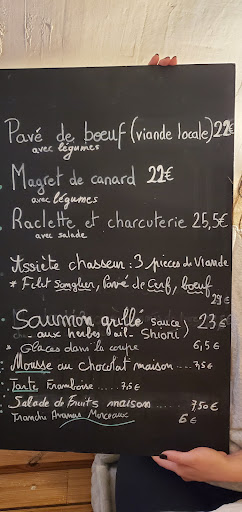 Pavé de bœuf (viande locale) 22€
avec légumes
Magret de canard 22€
avec légumes
Raclette et charcuterie 25,5€
avec salade
Assiète chasseur : 3 pièces de Viande
* Filet Sanglier, Pavé de Cerf, bœuf
29€
Saumon grillé Sauce 23€
aux herbes
* Glaces dans la coupe 6,5€
Mousse au chocolat maison .... 7,5€
Tarte Framboise .... 7,5€
Salade de Fruits maison ..... 7,50€
Tranche Ananas Morceaux
6€